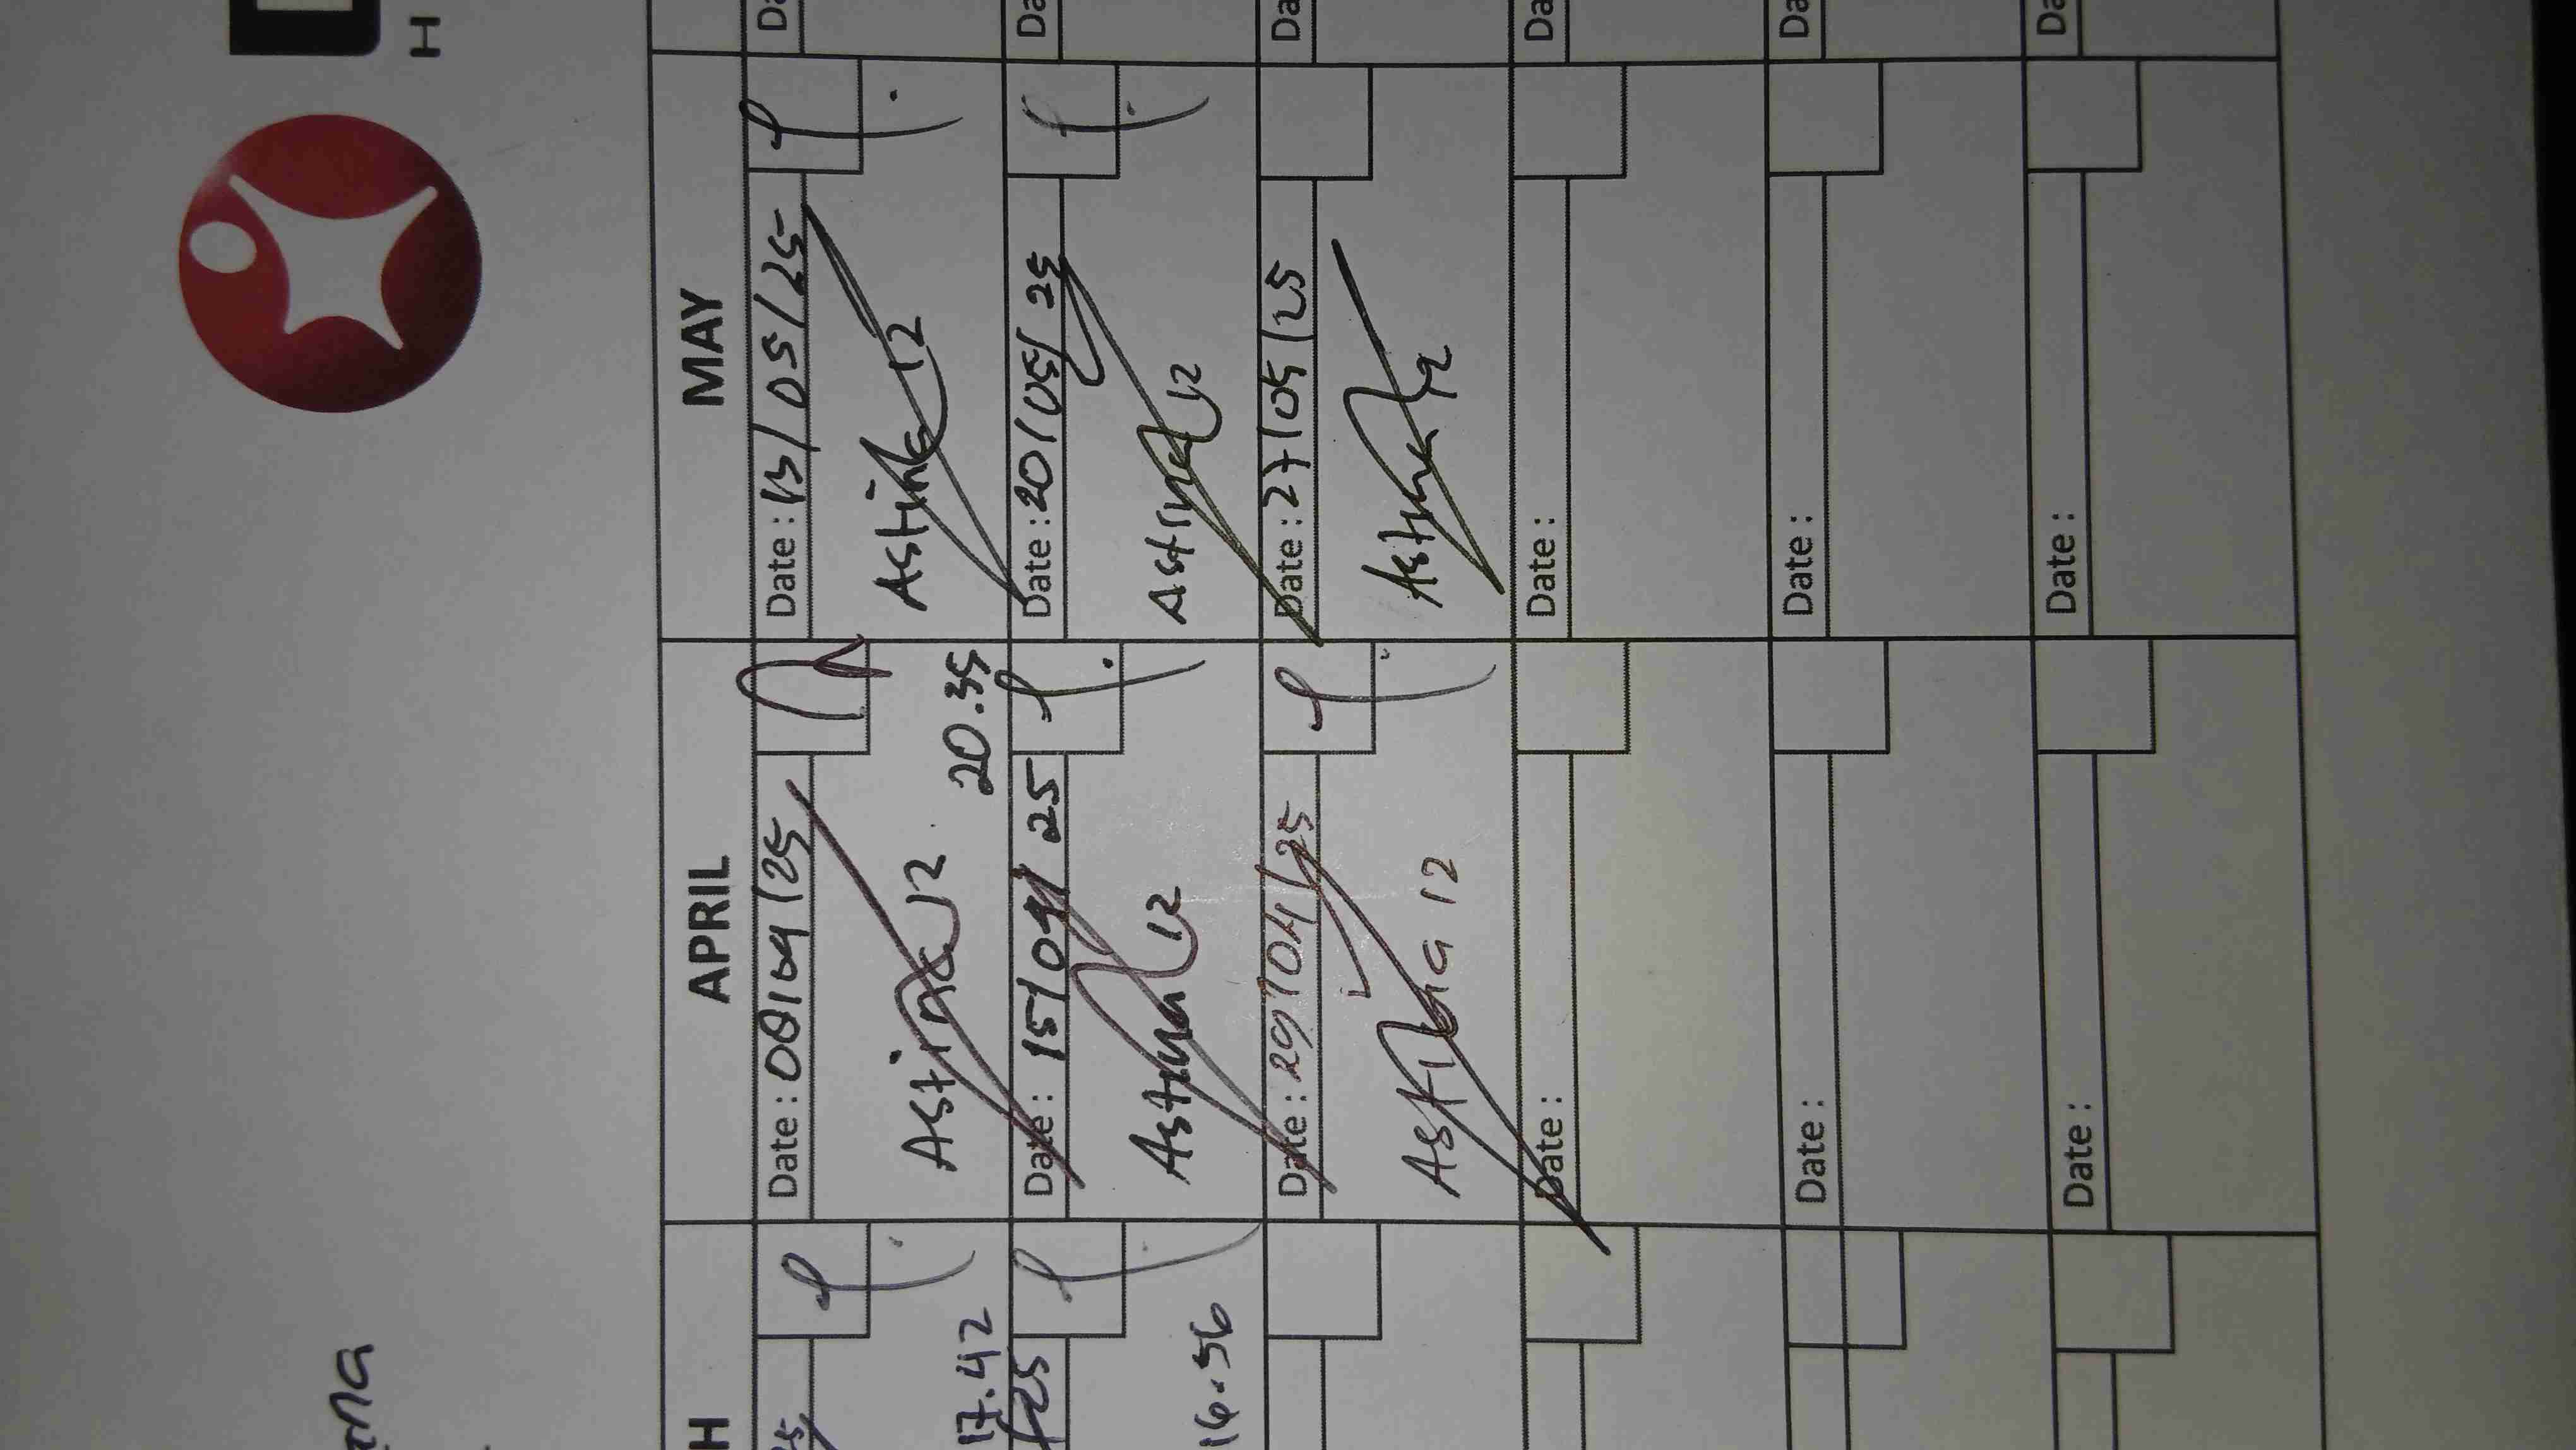 H
ana
H
APRIL
MAY
25
Date : 08/04/25
Date : 13/05/25
Da
17.42
Astina 12
20.35
Astina 12
/25
Date : 15/04/25
Date : 20/05/25
Da
16.56
Astina 12
Astina 12
Date : 29/04/25
Date : 27/05/25
Da
Astina 12
Astina 12
Date :
Date :
Da
Date :
Date :
Da
Date :
Date :
Da